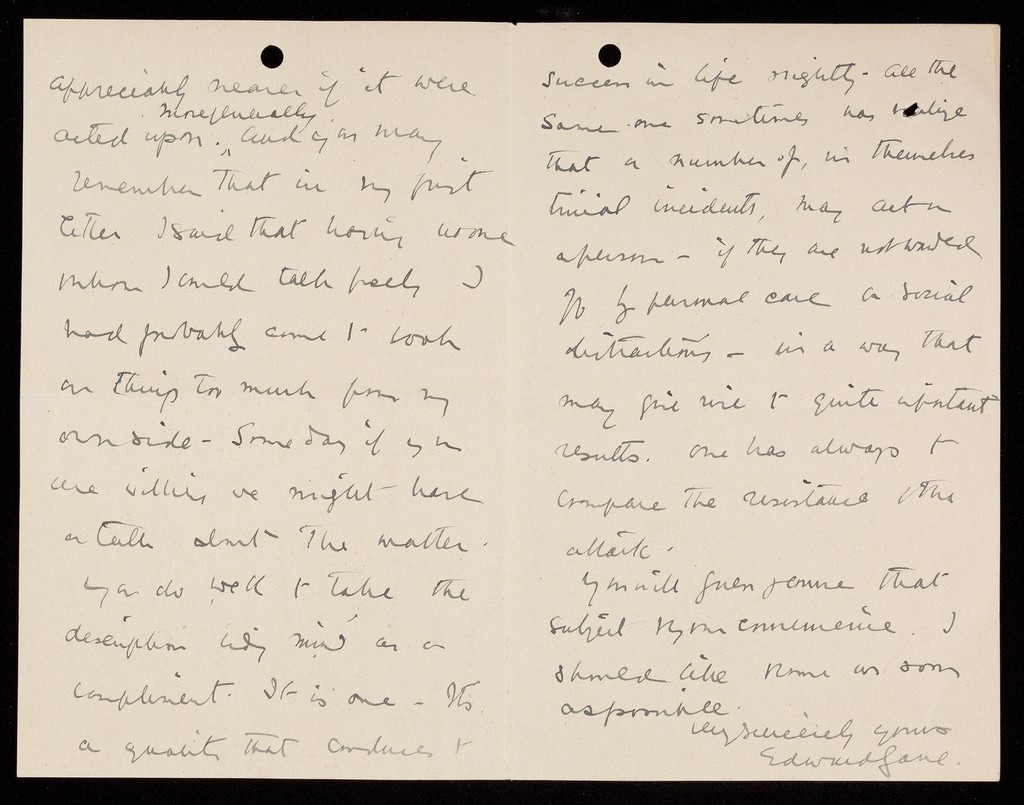 appreciably nearer if it were
more generally
acted upon. And you may
remember that in my first
letter I said that having no one
whom I could talk freely I
had probably come to look
on things too much from my
own side - Some day if you
are willing we might have
a talk about the matter.
you do well to take the
description tidy mind as a
compliment. It is one - Its
a quality that conduces to
success in life rightly - All the
same one sometimes has realize
that a number of, in themselves
trivial incidents, may act on
a person - if they are not warded
off by personal care or social
distractions - in a way that
may give rise to quite important
results. One has always to
compare the resistance & the
attack.
You will
subject to your convenience. I
should like to come as soon
as possible.
Very sincerely yours
Edward Gane.